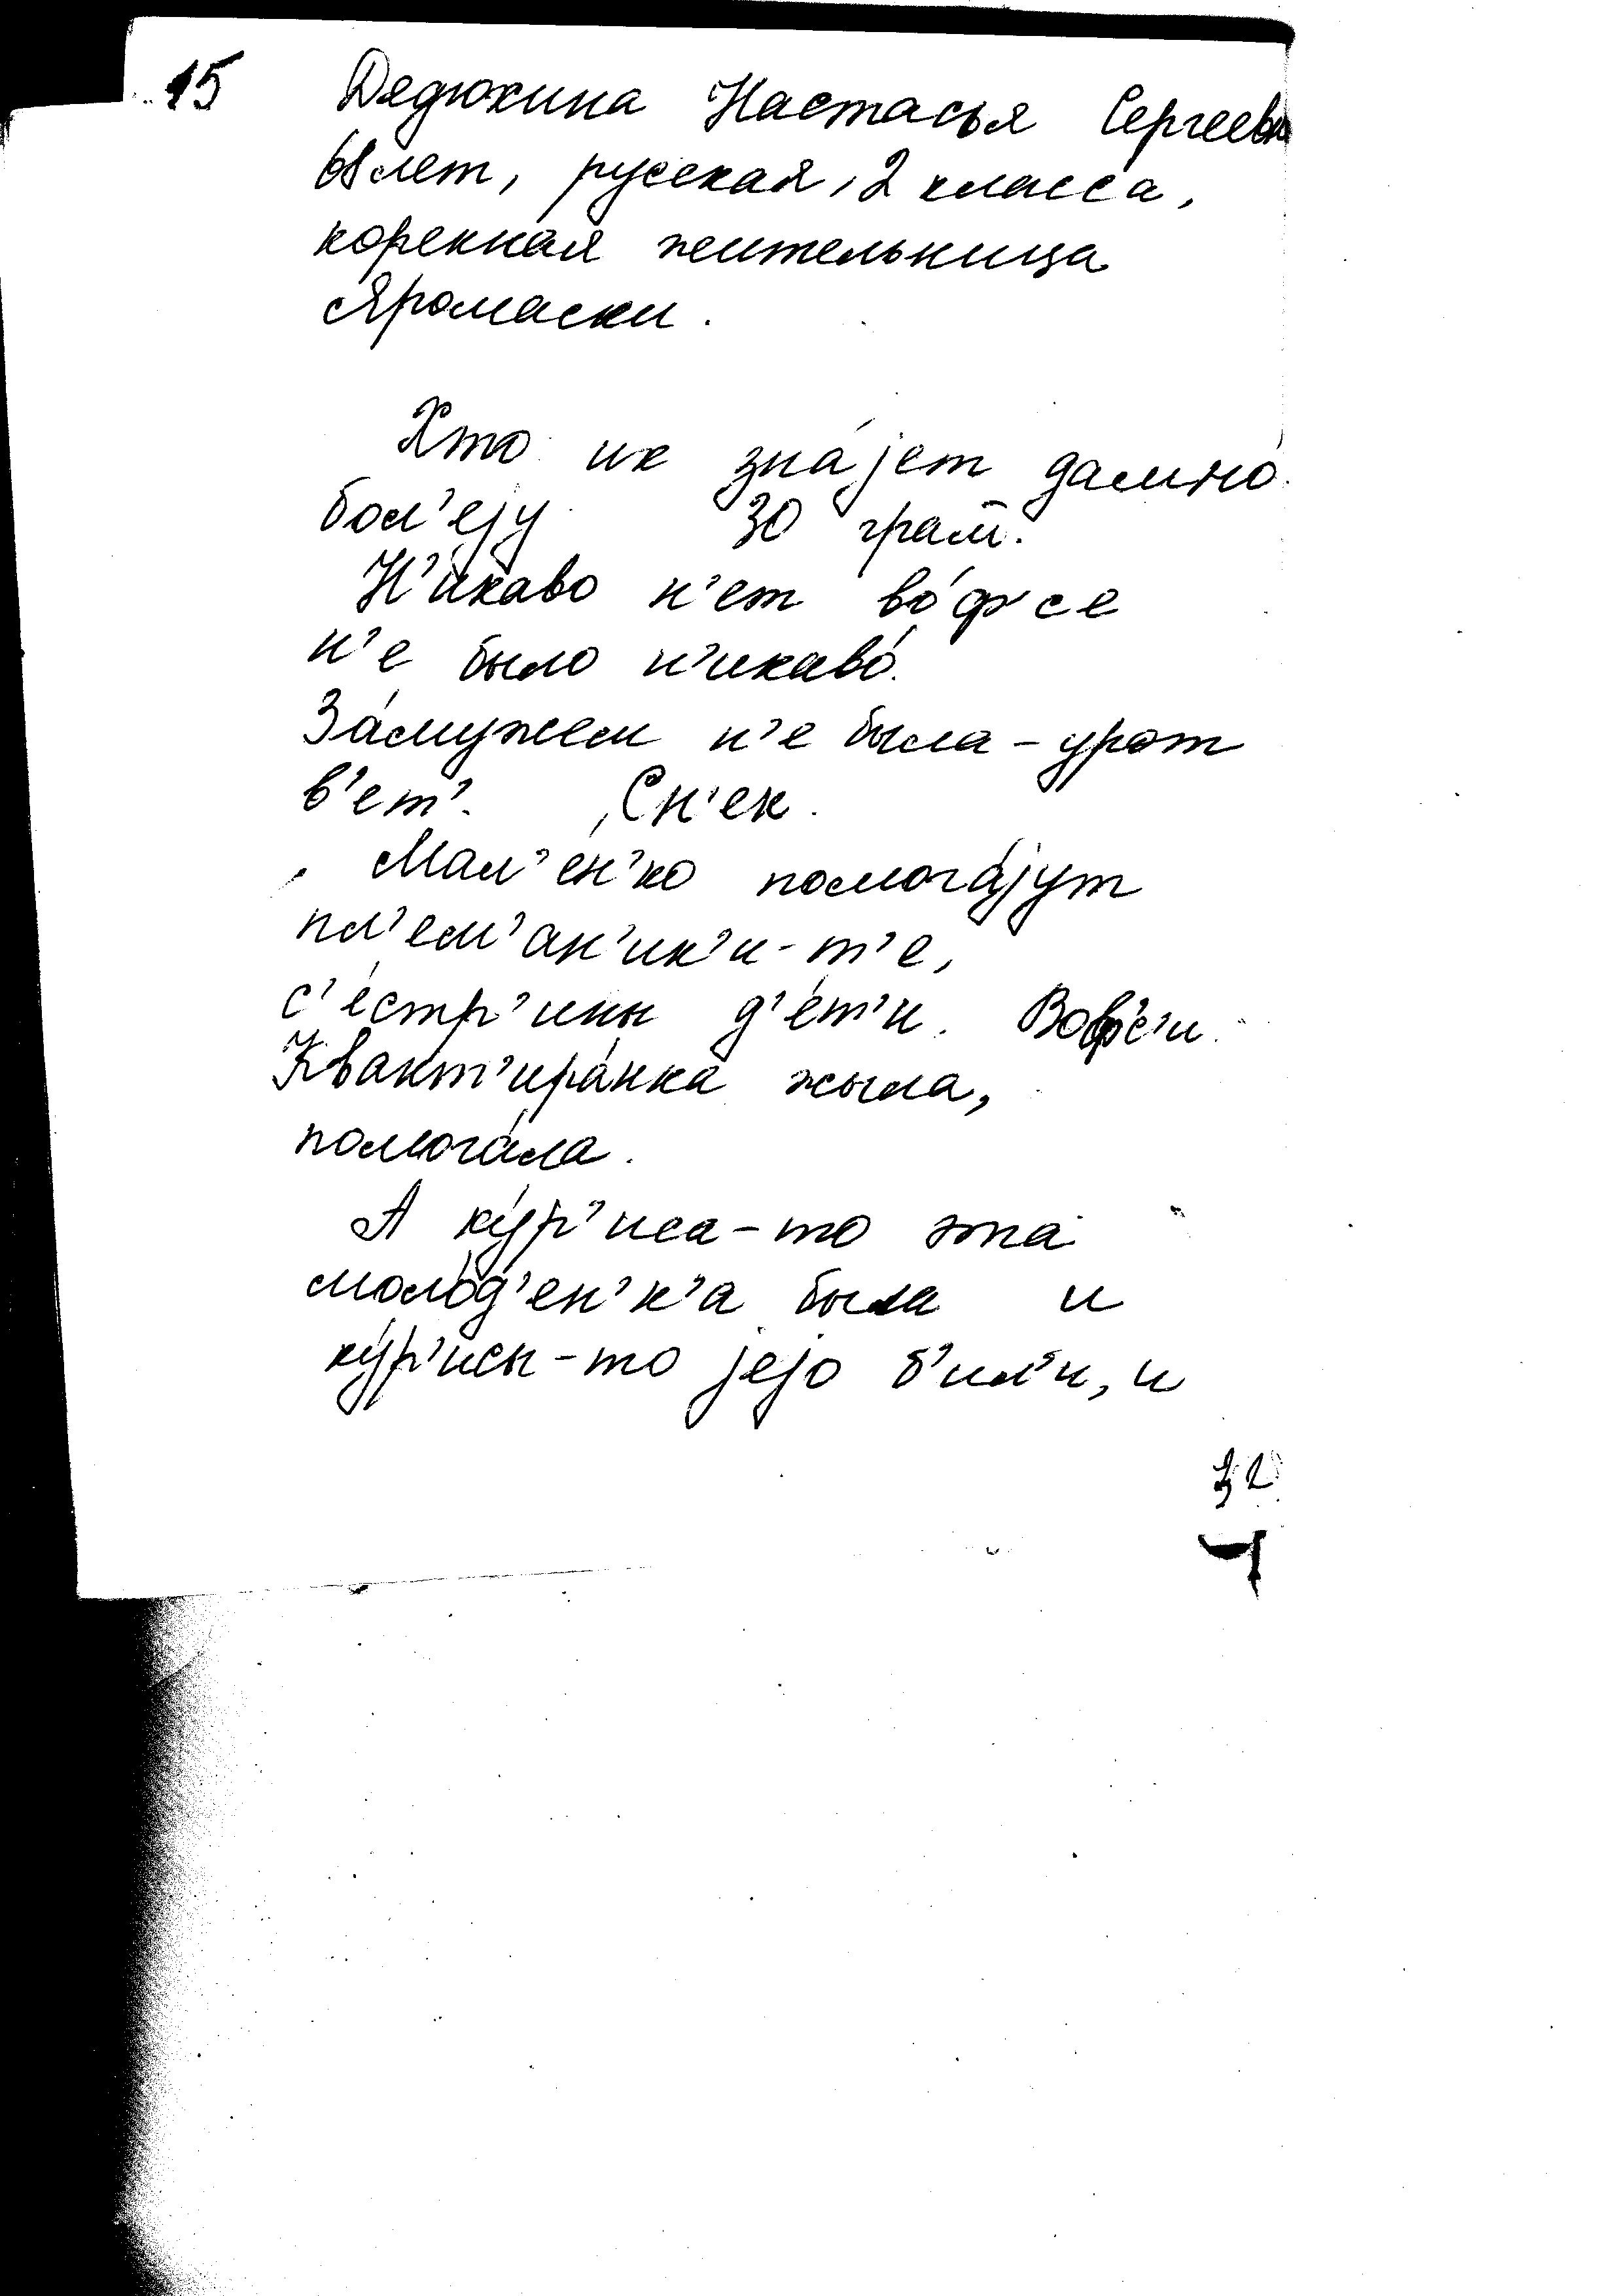 15 Дедюхина Настасья Сергеевн
68 лет, русская, 2 класса,
коренная жительница
Яромаски.
Хто их зна́јет да́мно́
бол'е́јy 30 грам.
Н'икаво н'ет во́фсе
н'е было н'икаво́.
За́мужем н'е была - урот
в'ет'. Сн'ек.
Мал'ен'ко помога́јут
пл'ем'а́н'ик'и-т'е,
с'е́стр'ины д'е́т'и.
Квакт'ира́нка жыла,
помога́ла.
А ку́р'иса-то эта
моло́д'ен'к'а была и
ку́р'исы-то јејо б'ил'и, и
32